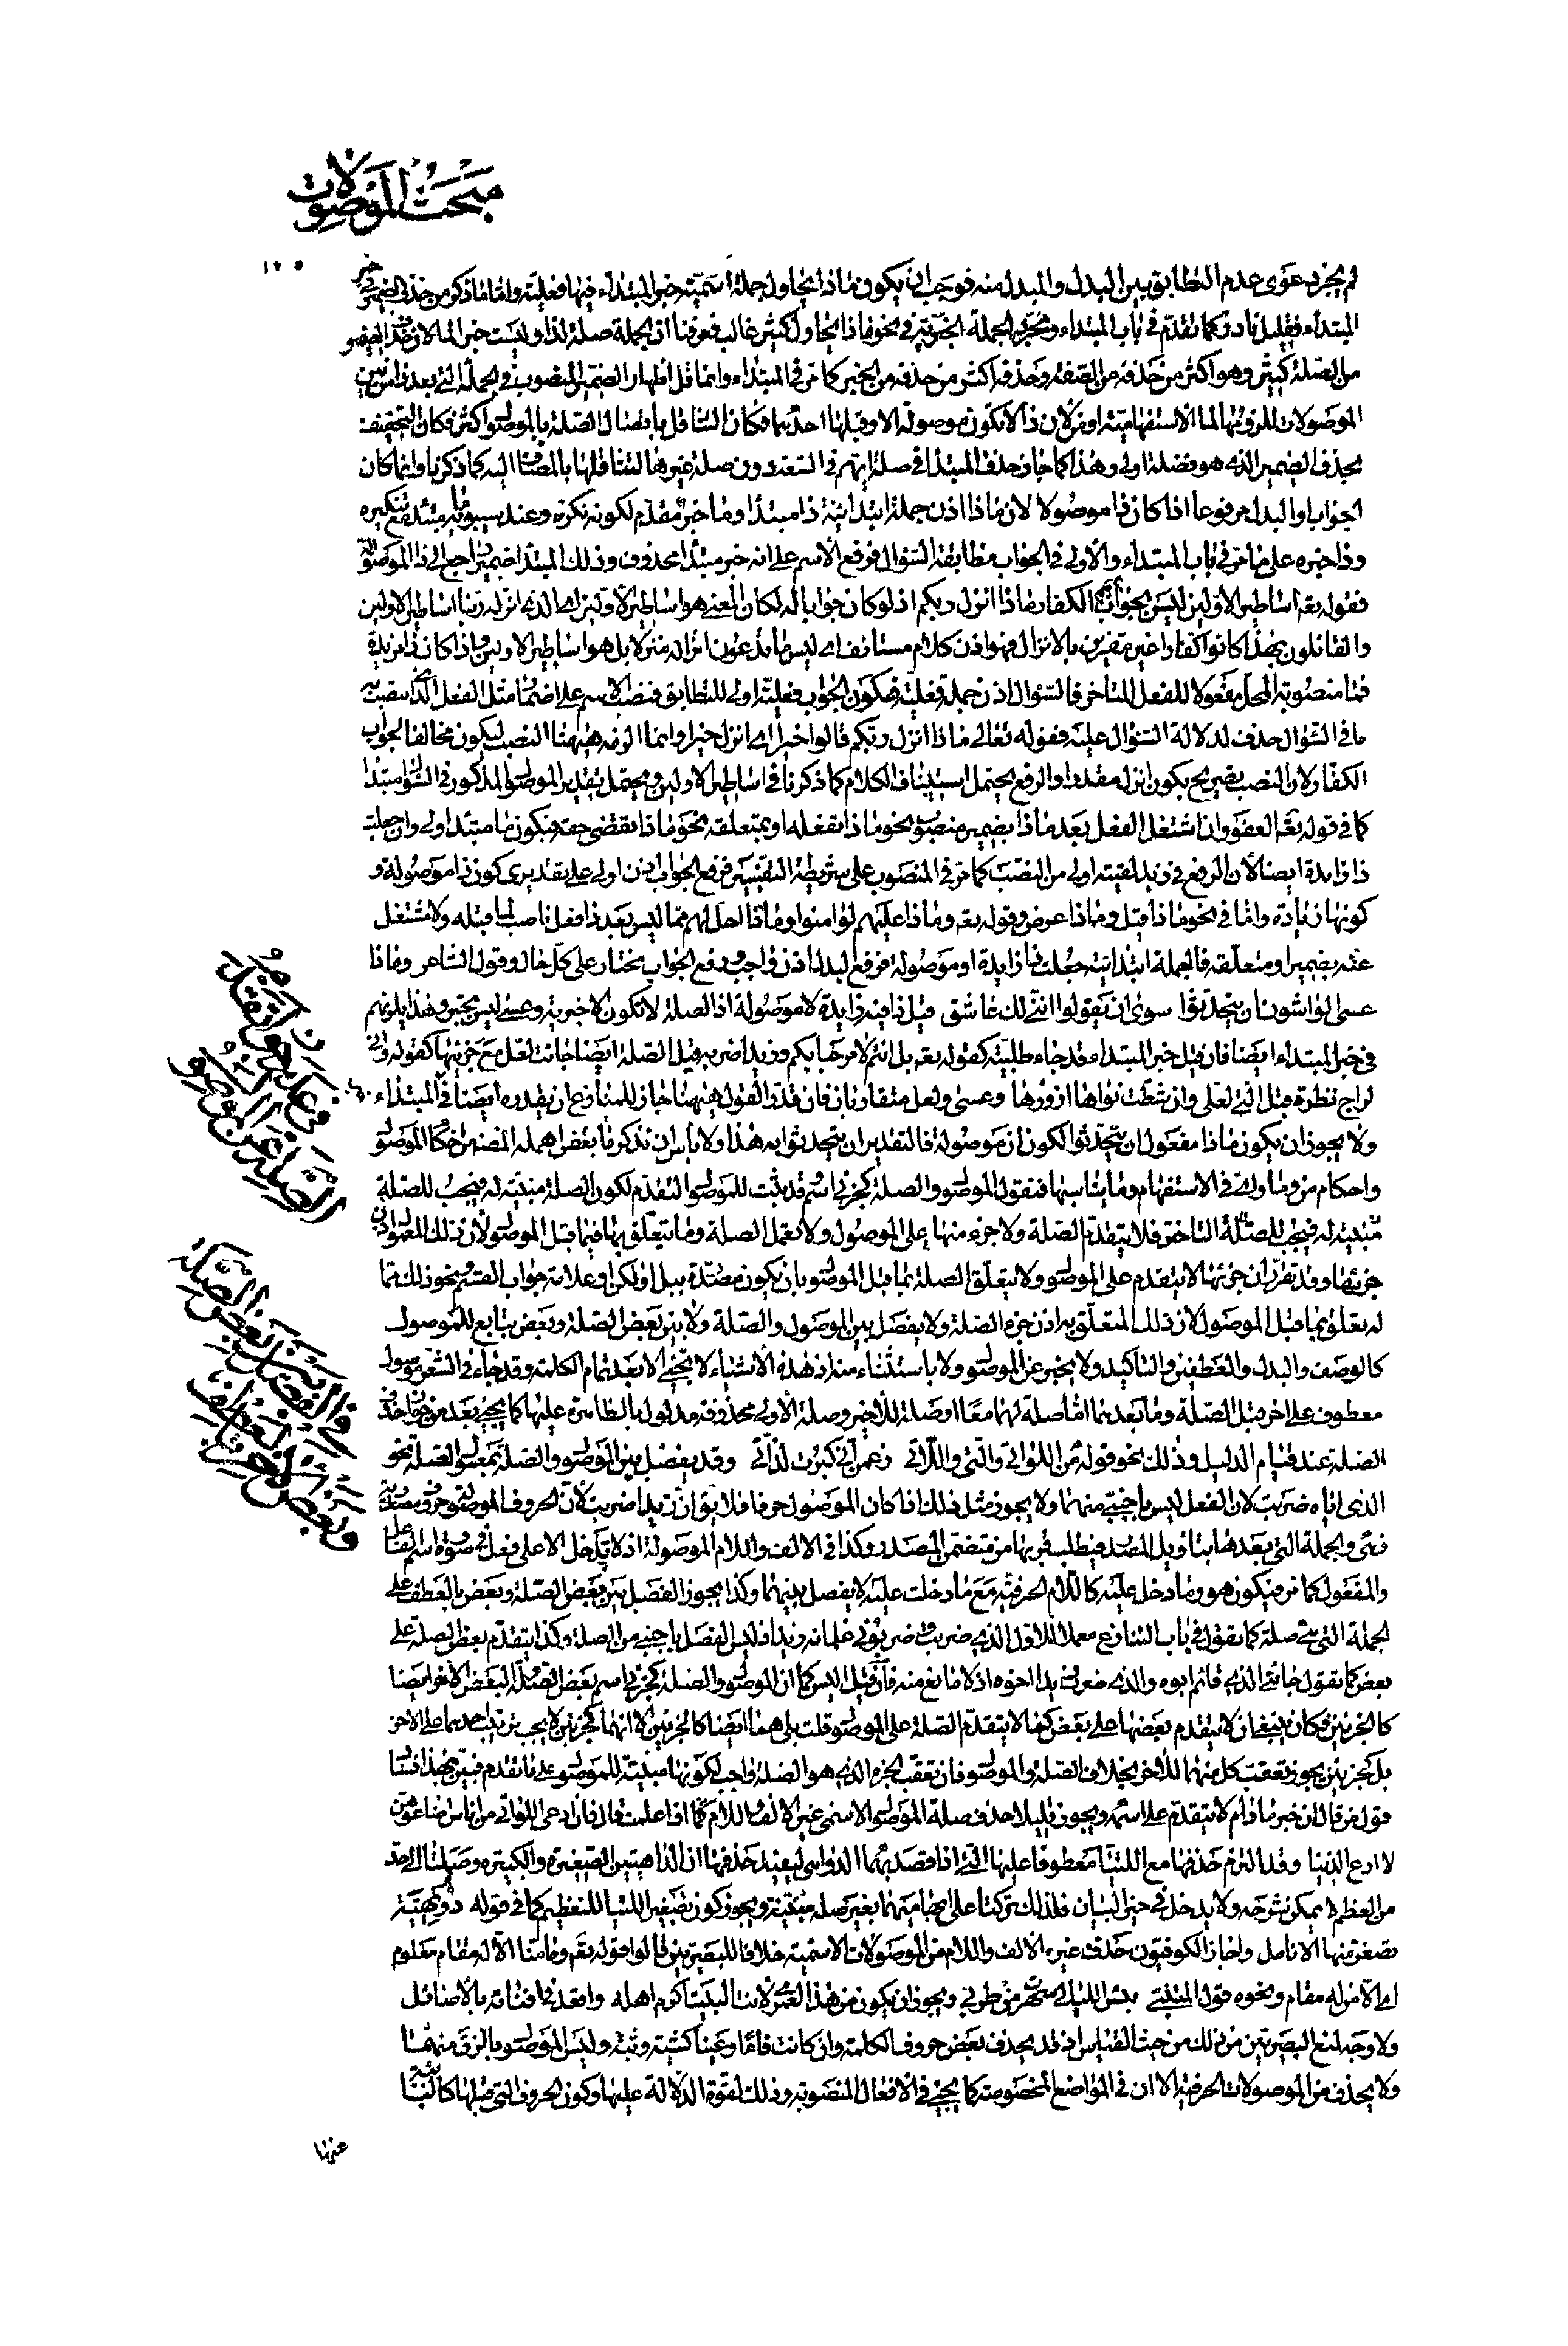 مبحث الموصولات
١٠٥
لم يجز دعوى عدم التطابق بين البدل والمبدل منه فوجب ان يكون ماذا يحاول جملة اسمية خبر المبتداء فيها فعلية واما ما ذكر من حذف الضمير في خبر
المبتداء فقليل نادر كما تقدم في باب المبتداء وتجرد الجملة الخبرية في نحو ماذا يحاول كثير غالب فعرفنا ان الجملة صلة لذا وليست خبر الما لان حذف الضمير
من الصلة كثير وهو اكثر من حذفه من الصفة وحذفه اكثر من حذفه من الخبر كما مر في المبتداء وانما قل اظهار الضمير المنصوب في الجملة التي بعد ذا من بين
الموصولات للزومها لما الاستفهامية او من لان ذا لا تكون موصولة الا وقبلها احديهما فكان التثاقل باتصال الصلة بالموصول اكثر فكان التخفيف
بحذف الضمير الذي هو فضلة اولى وهذا كما جاز حذف المبتدأ في صلة ايهم في السعة دون صلة غيرها لتثاقلها بالمضاف اليه كما ذكرنا وانما كان
الجواب او البدل مرفوعا اذا كان ذا موصولا لان ماذا اذن جملة ابتدائية ذا مبتدا وما خبر مقدم لكونه نكرة وعند سيبويه ما مبتدء مع تنكيره
وذا خبره على ما مر في باب المبتداء والاولى في الجواب مطابقة السؤال فرفع الاسم على انه خبر مبتدا محذوف وذلك المبتدا ضمير راجع الى ذا الموصولة
فقوله تعه اساطير الاولين ليس بجواب لقول الكفار ماذا انزل ربكم اذ لو كان جوابا له لكان المعنى هو اساطير الاولين اى الذى انزله ربنا اساطير الاولين
والقائلون بهذا كانوا كفارا غير مقرين بالانزال فهو اذن كلام مستانف اى ليس ما تدعون انزاله منزلا بل هو اساطير الاولين واذا كان ذا مزيدة
فما منصوبة المحل مفعولا للفعل المتاخر فالسؤال اذن جملة فعلية فكون الجواب فعلية اولى للتطابق فنصب الاسم على اضمار مثل الفعل الذى انتصب به
ما في السؤال حذف لدلالة السؤال عليه فقوله تعالى ماذا انزل ربكم قالوا خيرا اى انزل خيرا وانما الزم ههنا النصب ليكون مخالفا لجواب
الكفار لان النصب تصريح بكون انزل مقدرا والرفع يحتمل استيناف الكلام كما ذكرنا في اساطير الاولين ويحتمل تقدير الموصول المذكور في السؤال مبتدا
كما في قوله تعه العفو وان اشتغل الفعل بعد ماذا بضمير منصوب نحو ماذا تفعله او بمتعلقه نحو ماذا تقضى حقه فيكون ما مبتدا اولى وان جعلت
ذا زايدة ايضا لان الرفع في زيد لقيته اولى من النصب كما مر في المنصوب على شريطة التفسير فرفع الجواب اذن اولى على تقديرى كون ذا موصولة و
كونها زيادة واما في نحو ماذا قيل وماذا عرض وقوله تعه وماذا عليهم لو امنوا وماذا احل لهم مما ليس بعد ذا فعل ناصب لما قبله ولا مشتغل
عنه بضميرا ومتعلقه فالجملة ابتدائية جعلت ذا زايدة او موصولة فرفع البدل اذن واجب ورفع الجواب مختار على كل حال وقول الشاعر وماذا
عسى الواشون ان يتحدثوا سوى ان يقولوا اننى لك عاشق قيل ذا فيه زايدة لا موصولة اذ الصلة لا تكون الا خبرية وعسى ليس بخبر وهذا يلزمهم
في خبر المبتداء ايضا فان قيل خبر المبتداء قد جاء طلبية كقوله تعه بل انتم لا مرحبا بكم وزيد اضربه قيل الصلة ايضا جاءت لعل مع جزئيها كقوله وانى
لراج نظرة قبل التى لعلى وان شطت نواها ازورها وعسى ولعل متقاربان فان قدر القول ههنا جاز للمنازع ان يقدره ايضا في المبتداء
ولا يجوز ان يكون ماذا مفعول ان يتحدثوا لكون ان موصولة فالتقدير ان يتحدثوا به هذا ولا باس ان نذكر ما بعض اهمله المصنف من احكام الموصول
واحكام من وما واى في الاستفهام وما يناسبها فنقول الموصول والصلة كجزئى اسم قد ثبت للموصول التقدم لكون الصلة مبنية له فيجب للصلة
مبنية له فيجب للصلة التاخر فلا يتقدم الصلة ولا جزء منها على الموصول ولا تعمل الصلة وما يتعلق بها فيما قبل الموصول لان ذلك المعمول اذن
جزئها وقد تقرر ان جزئها لا يتقدم على الموصول ولا يتعلق الصلة بما قبل الموصول بان يكون مصدرة ببل او لكن او علامة جواب القسم ونحو ذلك مما
له تعلق بما قبل الموصول لان ذلك المتعلق به اذن جزء الصلة ولا يفصل بين الموصول والصلة ولا بين بعض الصلة وبعض بتابع للموصول
كالوصف والبدل والعطفين والتاكيد ولا بخبر عن الموصول ولا باستثناء منه اذ هذه الاشياء لا تجئ الا بعد تمام الكلمة وقد جاء في الشعر موصول
معطوف على اخر قبل الصلة وما بعدهما اما صلة لهما معا او صلة للاخير وصلة الاولى محذوفة مدلول بالظاهرة عليها كما يجئ بعد من جواز حذف
الصلة عند قيام الدليل وذلك نحو قوله من اللواتي والتى واللاتى زعمن انى كبرت لداتى وقد يفصل بين الموصول والصلة بمعمول الصلة نحو
الذى اياه ضربت لان الفعل ليس باجنبى منهما ولا يجوز مثل ذلك اذا كان الموصول حرفا فلا يقال ان زيدا ضربت لان الحروف الموصولة حروف مصدرية
فهى والجملة التى بعدها بتاويل المصدر فيطلب قربها من متضمن المصدر وكذا في الالف واللام الموصولة اذ لا تدخل الا على فعل في صورة اسم الفاعل
والمفعول كما مر فيكون هو وما دخل عليه كاللام الحرفية مع ما دخلت عليه لا يفصل بينهما وكذا يجوز الفصل بين بعض الصلة وبعض بالعطف على
الجملة التى هى صلة كما تقول في باب التنازع معملا للاول الذى ضربت وضربونى غلمانه زيد اذ ليس الفصل باجنبى من الصلة وكذا يتقدم بعض الصلة على
بعض كما تقول جائنى الذى قائم ابوه والذى ضرب زيدا اخوه اذ لا مانع منه فان قيل اليس كما ان الموصول والصلة كجزئى اسم بعض الصلة لبعض الاخر ايضا
كالجزئين فكان ينبغى ان لا يتقدم بعضها على بعض كما لا يتقدم الصلة على الموصول قلت بلى هما ايضا كالجزئين الا انهما كجزئين لا يجب ترتيب احدهما على الاخر
بل كجزئين يجوز تعقب كل منهما للاخر بخلاف الصلة والموصول فان تعقب الجزء الذى هو الصلة واجب لكونها مبنية للموصول على ما تقدم فتبين بهذا فساد
قول من قال ان خبر مادام لا يتقدم على اسمه ويجوز قليلا حذف صلة الموصول الاسمى غير الالف واللام كما اذا علمت قال فان ادعى اللواتى من اناس اضاعوهن
لا ادع الذينا وقد التزم حذفها مع اللتيا معطوفا عليها التى اذا قصد بهما الدواهى ليفيد حذفها ان الداهيتين الصغيرة والكبيرة وصلتا الى حد
من العظم لا يمكن شرحه ولا يدخل في حيز البيان فلذلك تركتا على ابهامهما بغير صلة مبنية ويجوز كون تصغير اللتيا للتعظيم كما في قوله دويهية
تصفر منها الانامل واجاز الكوفيون حذف غير الالف واللام من الموصولات الاسمية خلافا للبصريين قالوا قوله تعه وما منا الا له مقام معلوم
اى الا من له مقام ونحوه قول المتنبى بئس الليالى سهرت من طربي ويجوز ان يكون من هذا لعمرى لانت البيت اكرم اهله واقعد في افنائه بالاصائل
ولا وجه لمنع البصريين من ذلك من حيث القياس اذ قد يحذف بعض حروف الكلمة وان كانت فاءا وعينا كشية وثبة وليس الموصول بالزق منهما
ولا يحذف من الموصولات الحرفية الا ان في المواضع المخصوصة كما يجئ في الافعال المنصوبة وذلك لقوة الدلالة عليها وكون الحروف التى قبلها كالنائبة
عنها